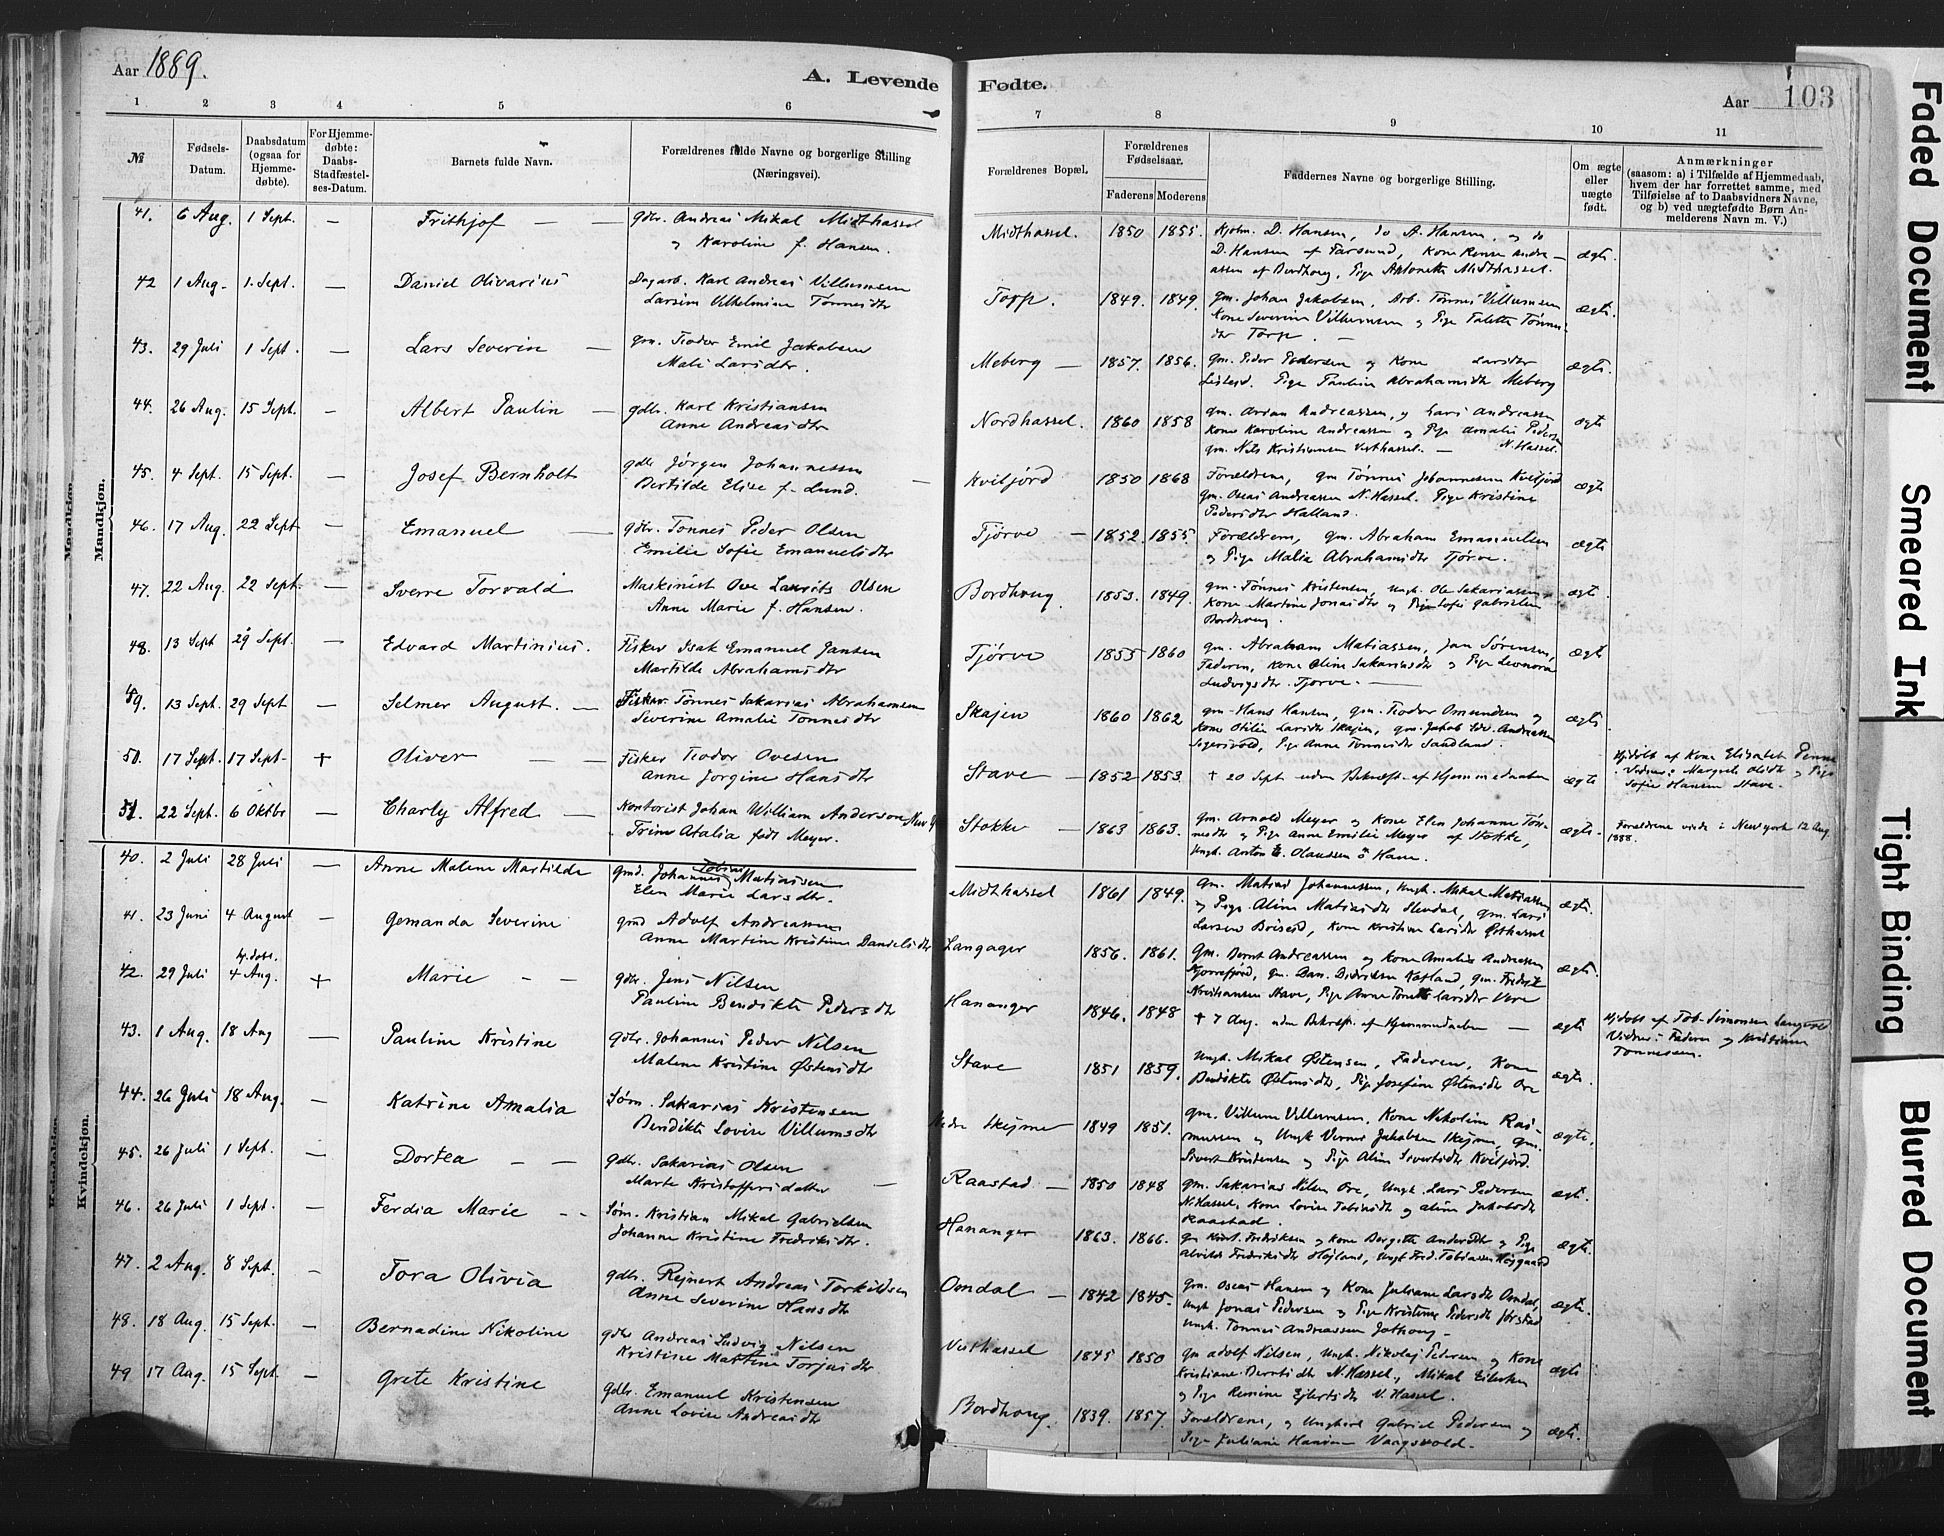 Aar 1889.
A. Levende
Fødte.
Aar 103
1 2 3 4 5 6 7 8 9 10 11
№
Fødsels-
Datum.
Daabsdatum
(ogsaa for
Hjemme-
døbte).
For Hjemme-
døbte:
Daabs-
Stadfæstel-
ses-Datum.
Barnets fulde Navn.
Forældrenes fulde Navne og borgerlige Stilling
(Næringsvei).
Forældrenes Bopæl.
Forældrenes
Fødselsaar.
Faderens Moderens
Faddernes Navne og borgerlige Stilling.
Om ægte
eller
uægte
født.
Anmærkninger
(saasom: a) i Tilfælde af Hjemmedaab,
hvem der har forrettet samme, med
Tilføielse af to Daabsvidners Navne,
og b) ved uægtefødte Børn An-
melderens Navn m. V.)
Mandkjøn.
41. 6 Aug. 1 Sept. — Frithjof — — gdbr. Andreas Mikal Midthassel
og Karoline f. Hansen.
Midthassel. 1850 1855. D. Hansen, do A. Hansen, og do
D. Hansen af Farsund, Kone
assen af Bordhoug, Pige Antonette Midthassel.
ægte.
42 1 Aug. 1. Sept. — Daniel Olivarius Dagarb. Karl Andreas Villumsen
Larsine Vilhelmine Tønnesdtr
Torp. 1849. 1849. gm. Johan Jakobsen, Arb. Tønnes Villumsen
Kone Severine Villumsen og Pige Talette Tønnes-
dtr Torp. —
ægte.
43. 29 Juli 1 Sept. — Lars Severin — gm. Teodor Emil Jakobsen
Mali Larsdtr.
Meberg — 1857. 1856. gm. Peder Pedersen og Kone Larsdtr
Pige Pauline Abrahamsdtr Meberg
ægte.
44. 26 Aug. 15 Sept. — Albert Paulin — gdbr. Karl Kristiansen
Anne Andreasdtr
Nordhassel. 1860 1858 gm. Andreassen, og Lars Andreassen
Kone Karoline Andreassen og Pige Amalie Pedersen
gm. Nils Kristiansen Vesthassel. — N. Hassel.
ægte
45. 4 Sept. 15 Sept. — Josef Bernholt gdbr Jørgen Johannessen
Bertilde Elise f. Lund. —
Kviljord 1850 1868 Forældrene, gm Tønnes Johannessen Kviljord
gm. Oseas Andreassen N. Hassel. Pige Kristine
Pedersdtr Halland.
ægte
46. 17 Aug. 22 Sept — Emanuel — gdbr. Tønnes Peder Olsen
Emilie Sofie Emanuelsdtr
Tjørve — 1852. 1855. Forældrene, gm. Abraham Emanuelsen
og Pige Malia Abrahamsdtr Tjørve.
ægte
47. 22 Aug. 22 Sept. — Sverre Torvald Maskinist Ove Laurits Olsen
Anne Marie f. Hansen.
Bordhoug. 1853. 1849. gm. Tønnes Kristensen, Ungk. Ole Sakariassen
Kone Martine Jonasdtr og Pige Sofie Gabrielsen
Bordhoug.
ægte
48. 13 Sept 29 Sept. — Edvard Martinius. Fisker Isak Emanuel Jansen
Martilde Abrahamsdtr
Tjørve 1855 1860 gm. Abraham Matiassen, Jan Sørensen,
Faderen, Kone Oline Sakariasdtr og Pige Leonora
Ludvigsdtr. Tjørve. —
ægte
49. 13 Sept. 29 Sept — Selmer August. — Fisker Tønnes Sakarias Abrahamsen
Severine Amalie Tønnesdtr
Skajen 1860 1862 gm. Hans Hansen, gm. Teodor Omundsen og
Kone Otilie Larsdtr Skajen, gm. Jakob Andreassen
Segersvold, Pige Anne Tønnesdtr Sandland.
ægte
50. 17 Sept. 17 Sept. + Oliver — — Fisker Teodor Ovesen
Anne Jørgine Hansdtr
Stave — 1852 1853. + 20 Sept uden Bekræft. af Hjemmedaaben
ægte
Hjdøbt af Kone Elisabet Penne
Vidner: og Pige
Sofie Hansen Stave.
51. 22 Sept. 6 Oktbr — Charly Alfred — Kontorist Johan William Anderson
Trine Atalia født Meyer.
Stokke — 1863 1863. gm. Arnold Meyer og Kone Elen Johanne Tøn-
nesdtr og Pige Anne Emilie Meyer af Stokke,
Ungk. Anton E. Olaussen Hane.
ægte.
Forældrene viede i New york 12 Aug.
1888.
Kvindekjøn.
40. 2 Juli 28 Juli — Anne Malene Martilde gmd. Johannes Tobias Matiassen
Elen Marie Larsdtr.
Midthassel 1861 1849. gm. Matias Johannessen, Ungk. Mikal Matiassen
og Pige Aline Matiasdtr gm. Lars
Larsen Kone Kristine Larsdtr Østhassel
ægte.
41. 23 Juni 4 August — Gemanda Severine gmd Adolf Andreassen
Anne Martine Kristine Danielsdtr
Langager 1856. 1861. Gm. Bernt Andreassen og Kone Amalie Andreassen
gm. Dan. Didriksen gm. Fredrik
Kristiansen Stave, Pige Anne Larsdtr Vere
ægte.
42. 29 Juli hj. døbt. 4 Aug. + Marie — — gdbr. Jens Nilsen
Pauline Bendikte Pedersdtr
Hananger 1846. 1848 + 7 Aug. uden Bekræft. af Hjemmedaaben —
ægte
Hjdøbt af Tob. Simonsen
Vidner: Faderen og Kristiane
Tønnessen.
43. 1 Aug. 18 Aug — Pauline Kristine gdbr. Johannes Peder Nilsen
Malene Kristine Østensdtr
Stave 1851 1859. Ungk. Mikal Østensen, Faderen, Kone
Bendikte Østensdtr, Pige Josefine Østensdtr Ore
ægte.
44. 26 Juli 18 Aug. — Katrine Amalia Søm. Sakarias Kristensen
Bendikte Lovise Villumsdtr
Nedre Skejme 1849 1851. gm. Villum Villumsen, Kone Nikoline Ras-
mussen og Ungk Verner Jakobsen Skejme, gm.
Sivert Kristensen og Pige Aline Sivertsdtr Kviljord.
ægte.
45. 26 Juli 1 Sept. — Dortea — — gdbr. Sakarias Olsen
Marte Kristoffersdatter —
Raastad — 1850 1848 gm. Sakarias Nilsen Ore, Ungk. Lars Pedersen
N. Hassel, Kone Lovise Tobiasdtr og Aline Jakobsdtr
Raastad.
ægte.
46. 26 Juli 1 Sept. — Ferdia Marie — - Søm. Kristian Mikal Gabrielsen
Johanne Kristine Fredriksdtr.
Hananger 1863. 1866. Fredriksen og Kone Bergitte Andersdtr og Pige
Alvilde Fredriksdtr Højland, Ungk Fred. Tobiassen
ægte.
47. 2 Aug. 8 Sept. — Tora Olivia gdbr. Rejnert Andreas Torkildsen
Anne Severine Hansdtr
Omdal — 1842 1845. gm. Oseas Hansen og Kone Juliane Larsdtr Omdal,
Ungk Jonas Pedersen og Pige Kristine Pedersdtr Jørstad
Ungk. Tønnes Andreassen
ægte.
48. 18 Aug. 15 Sept. — Bernadine Nikoline gdbr Andreas Ludvig Nilsen
Kristine Martine Torjusdtr
Vesthassel 1845 1850 gm Adolf Nilsen, Ungk. Nikolaj Pedersen og Kone
Kristiane Berntsdtr N. Hassel, Mikal Eilertsen
og Pige Ejlertsdtr V. Hassel.
ægte
49 17 Aug. 15 Sept. — Grete Kristine gdbr. Emanuel Kristensen
Anne Lovise Andreasdtr
Bordhoug. 1839. 1857. Forældrene, og Ungkarl Gabriel Pedersen og
Pige Juliane Hansen Vaagsvold.
ægte.
Faded Document
Smeared Ink
Tight Binding
Blurred Document